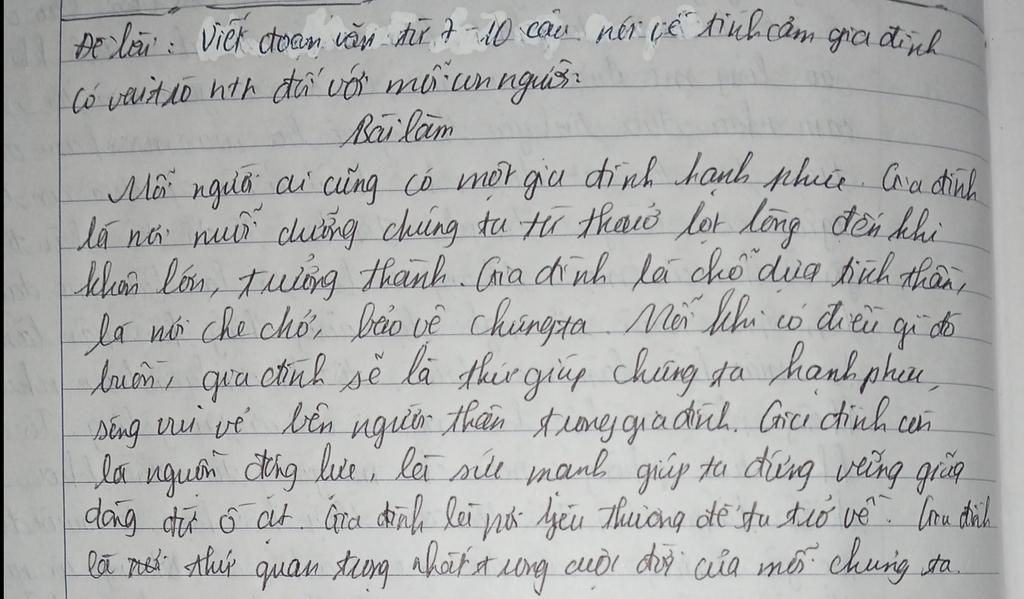 Đề bài: Viết đoạn văn từ 7-10 câu nói về tình cảm gia đình
có vai trò nth đối với mỗi con người:
Bài làm
Mỗi người ai cũng có một gia đình hạnh phúc. Gia đình
là nơi nuôi dưỡng chúng ta từ thưở lọt lòng đến khi
khôn lớn, trưởng thành. Gia đình là chỗ dựa tinh thần,
là nơi che chở, bảo vệ chúng ta. Mỗi khi có điều gì đó
buồn, gia đình sẽ là thứ giúp chúng ta hạnh phúc,
sống vui vẻ bên người thân trong gia đình. Gia đình còn
là nguồn động lực, là sức mạnh giúp ta đứng vững giữa
dòng đời ồ ạt. Gia đình là nơi yêu thương để ta trở về. Gia đình
là thứ quan trọng nhất trong cuộc đời của mỗi chúng ta.